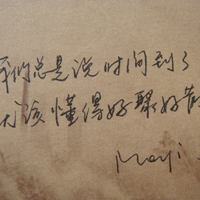 我们总是说时间到了
应该懂得好聚好散
Mayi